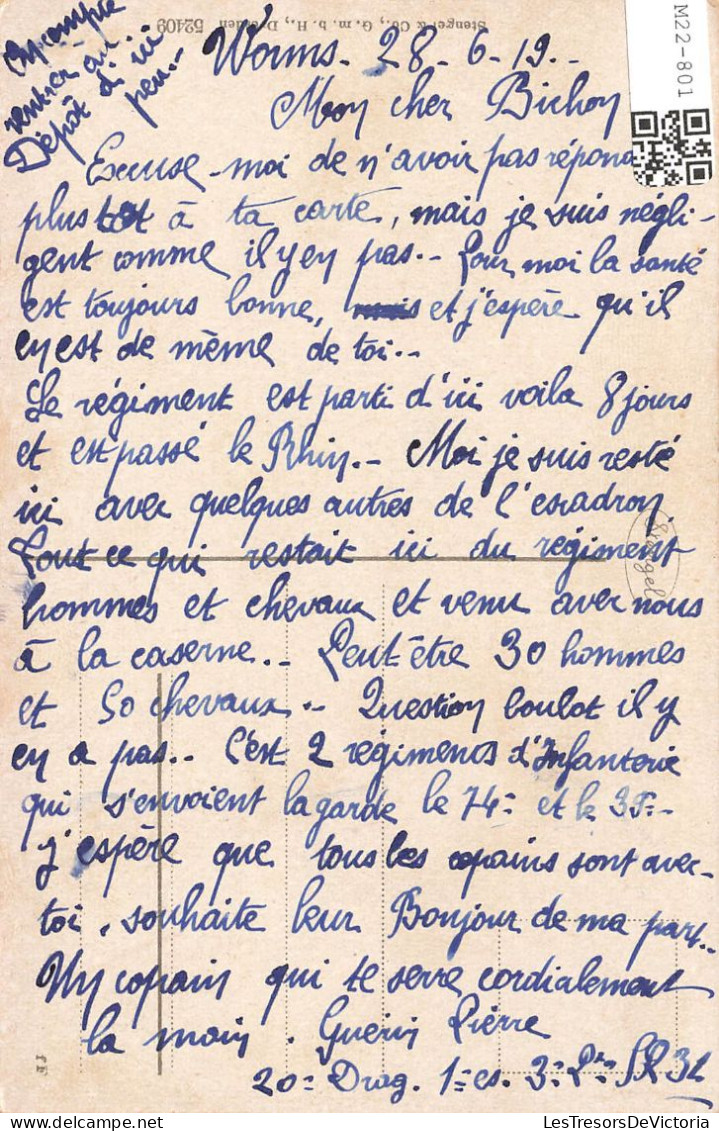 Stengel & Co., G. m. b. H., Dresden 52409
M22-801
Je compte
rentrer au..
Dépôt d'ici
peu..-
Worms. 28-6-19.-
Mon cher Bichon
Excuse-moi de n'avoir pas répond
plus tôt à ta carte, mais je suis négli-
gent comme il y en pas.- Pour moi la santé
est toujours bonne, et j'espère qu'il
en est de même de toi..
Le régiment est parti d'ici voila 8 jours
et est passé le Rhin.- Moi je suis resté
ici avec quelques autres de l'escadron.
Tout ce qui restait ici du régiment
hommes et chevaux et venu avec nous
à la caserne.. Peut-être 30 hommes
et 50 chevaux.. Question boulot il y
en a pas.. C'est 2 régiments d'Infanterie
qui s'envoient la garde le 74= et le 39=-
j'espère que tous les copains sont avec-
toi, souhaite leur Bonjour de ma part..
Un copain qui te serre cordialement
la main. Guérin Pierre
20= Drag. 1=es. 3=P=
Stengel
LesTresorsDeVictoria